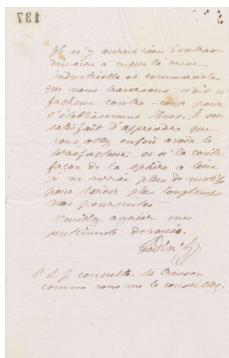 137
Il n'y aurait rien d'extraor
dinaire à ce que la crise
industrielle et commerciale
que nous traversons n'ait un
facheux contre-coup pour
l'établissement. Je suis
satisfait d'apprendre que
vous allez enfin avoir le
contrefacteur, et à la contre
façon de la sphère à
je ne verrai plus de motifs
pour tarder plus longtemps
nos poursuites
Veuillez agréer mes
sentiments dévoués.
Godin
P.S. Je consulte Mr Cresson
comme vous me le conseillez.